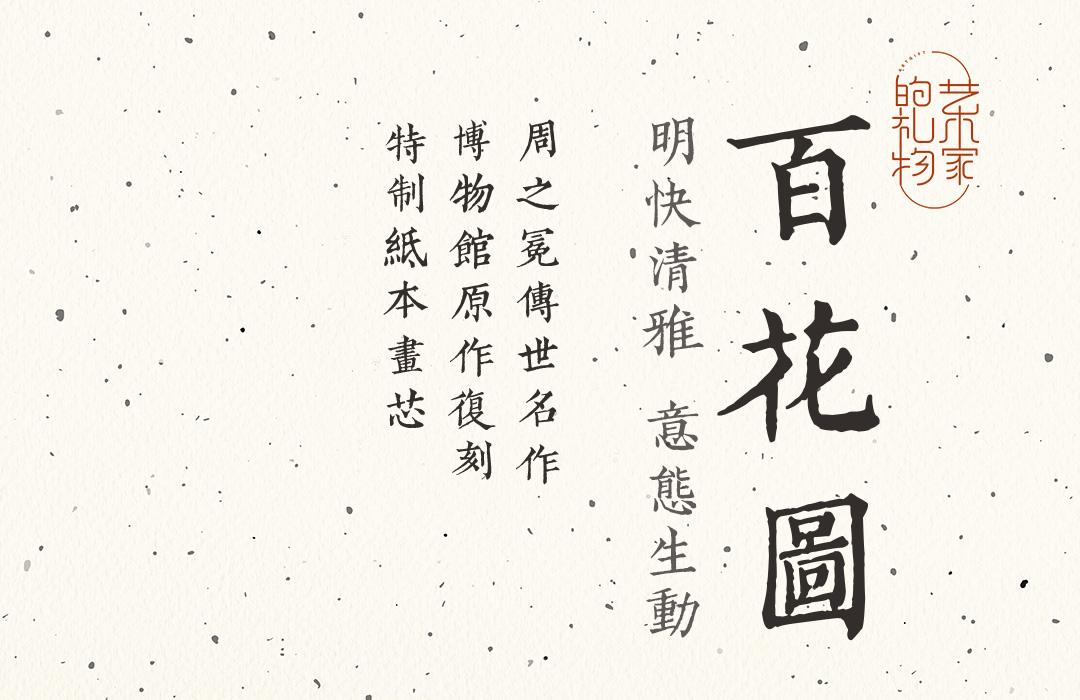 艺术家
的礼物
百花圖
明快清雅 意態生動
周之冕傳世名作
博物館原作復刻
特制紙本畫芯